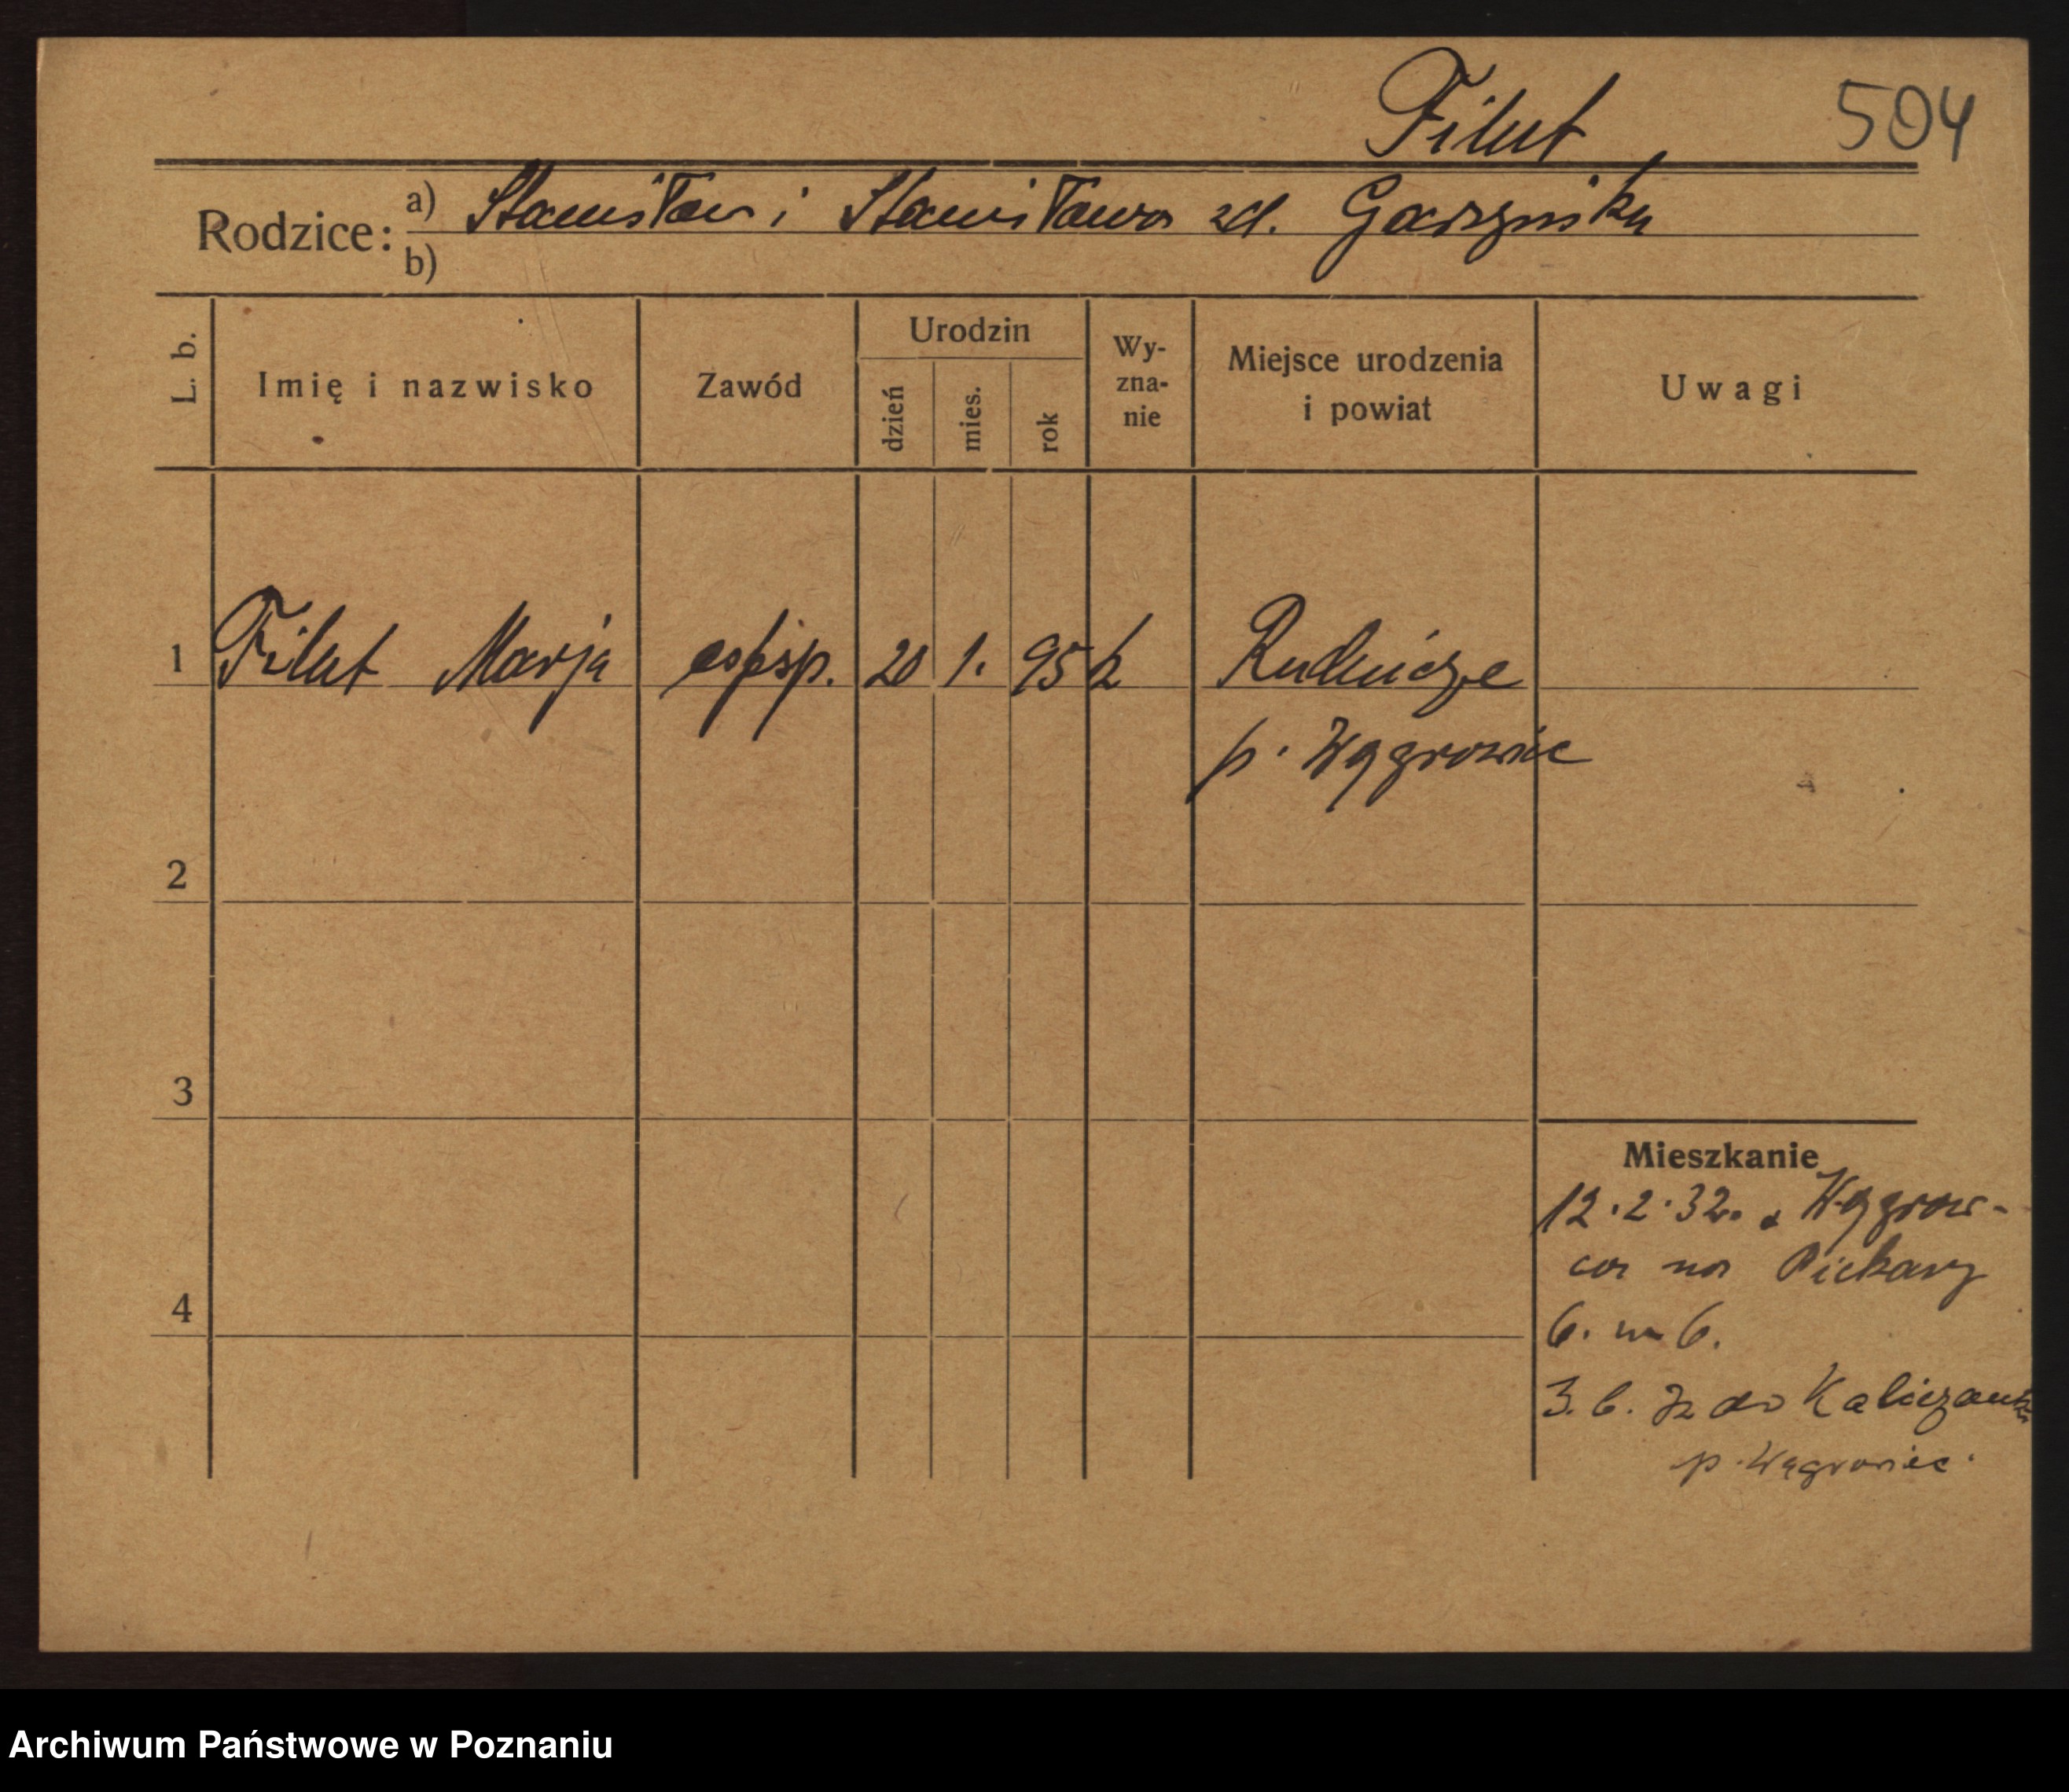 Filut 504
Rodzice: a) Stanisław i Stanisława zd.
b)
L. b. Imię i nazwisko Zawód Urodzin dzień mies. rok Wy-zna-nie Miejsce urodzenia i powiat Uwagi
1 Filut Marja 20 1. 95 k
p. Wągrowiec
2
3
4
Mieszkanie
12.2.32. z Wągrow-
ca na Piekary
6. m 6.
3.6. 32 do
p. Wągrowiec.
Archiwum Państwowe w Poznaniu